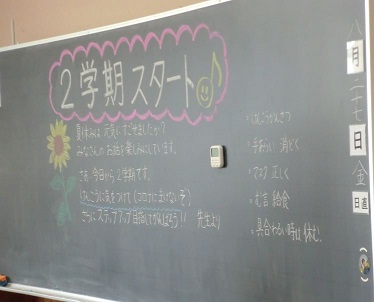 2学期スタート
夏休みは元気にすごせましたか?
みなさんのお話を楽しみにしています。
さあ 今日から2学期です。
けんこうに気をつけて(コロナに負けないぞ)
さらにステップアップ目指してがんばろう!! 先生より
・けんこうかんさつ
・手あらい 消どく
・マスク 正しく
・無言 給食
・具合わるい時は休む。
八月二十七日金
日直